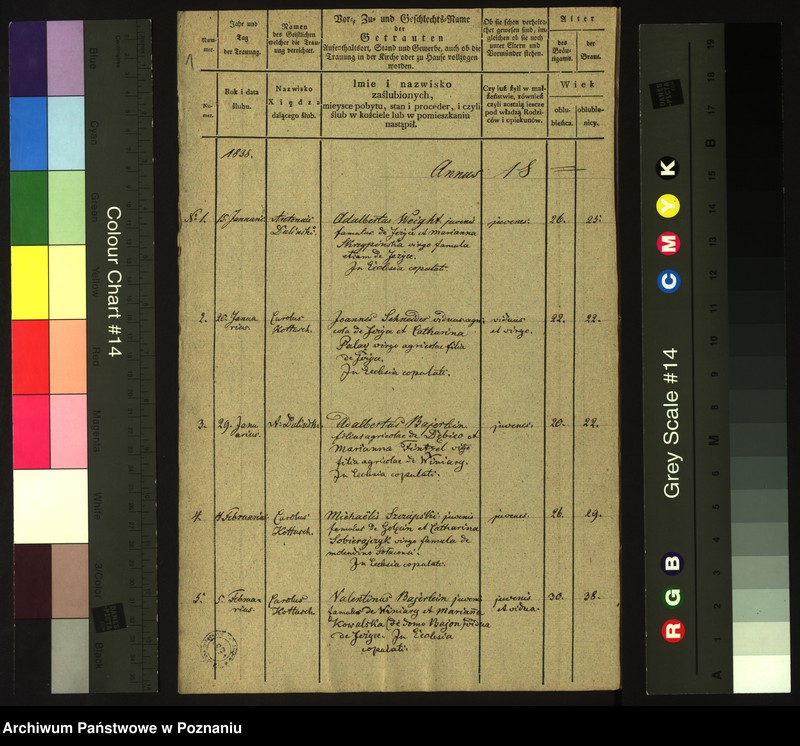 Num-
mer.
Jahr und
Tag
der Trauung.
Namen
des Geistlichen
welcher die Trau-
ung verrichtet.
Vor-, Zu- und Geschlechts-Name
der
Getrauten
Aufenthaltsort, Stand und Gewerbe, auch ob die
Trauung in der Kirche oder zu Hause vollzogen
worden.
Ob sie schon verheira-
thet gewesen sind, im-
gleichen ob sie noch
unter Eltern und
Vormünder stehen.
Alter
des
Bräu-
tigams.
der
Braut.
Nu-
mer.
Rok i data
ślubu.
Nazwisko
Xiędza
dalącego ślub.
Imie i nazwisko
zaślubionych,
mieysce pobytu, stan i proceder, i czyli
ślub w kościele lub w pomieszkaniu
nastąpił.
Czy iuż żyli w mał-
żeństwie, również
czyli zostaią ieszcze
pod władzą Rodzi-
ców i opiekunów.
Wiek
oblu-
bieńca.
oblubie-
nicy.
1838.
Annus 18
No 1. 15 Januarii Antonius
Duliński.
Adalbertus Weight juvenis
famulus de Jeżyce et Marianna
Skrzypińska virgo famula
etiam de Jeżyce.
In Ecclesia copulati.
juvenes. 26. 25.
2. 26. Janua
rius. Carolus
Kottasch.
Joannes Schneider viduus agri
cola de Jeżyce et Catharina
Palacz virgo agricolae filia
de Jeżyce.
In Ecclesia copulati.
viduus
et virgo. 22. 22.
3. 29. Janu
arius. A. Duliński.
Adalbertus Bajerlein
filius agricolae de Dębiec et
Marianna Hintzel virgo
filia agricolae de Winiary.
In Ecclesia copulati.
juvenes. 20. 22.
4. 4 Februarius Carolus
Kottasch.
Michaëlis Szczapski juvenis
famulus de Golęcin et Catharina
Sobierajczyk virgo famula de
molendino
In Ecclesia copulati.
juvenes. 26. 29.
5. 5. Februa
rius. Carolus
Kottasch
Valentinus Bajerlein juvenis
famulus de Winiary et Marianna
Kowalska (de domo Bajon) vidua
de Jeżyce. In Ecclesia
copulati.
juvenis
et vidua. 30. 38.
Colour Chart #14
Blue
Cyan
Green
Yellow
Red
Magenta
White
3/Color
Black
Grey Scale #14
R G B
C M Y K
A
M
B
DANES
PICTA
Archiwum Państwowe w Poznaniu